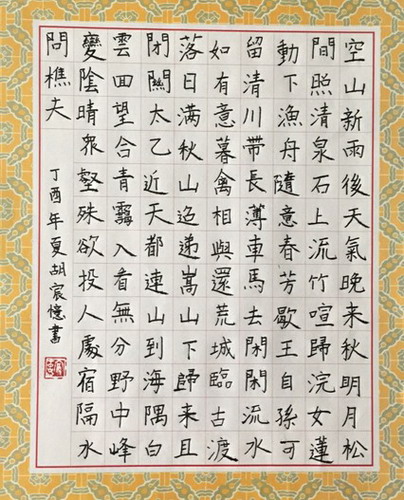 空山新雨後天氣晚来秋明月松
間照清泉石上流竹喧歸浣女蓮
動下漁舟隨意春芳歇王自孫可
留清川帶長薄車馬去閑閑流水
如有意暮禽相與還荒城臨古渡
落日满秋山迢遞嵩山下歸来且
閉關太乙近天都連山到海隅白
雲回望合青靄入看無分野中峰
變陰晴衆壑殊欲投人處宿隔水
問樵夫
丁酉年夏胡宸憶書